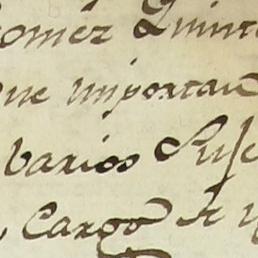 Gomez Quint
que importan
barios Sus
Cargo de